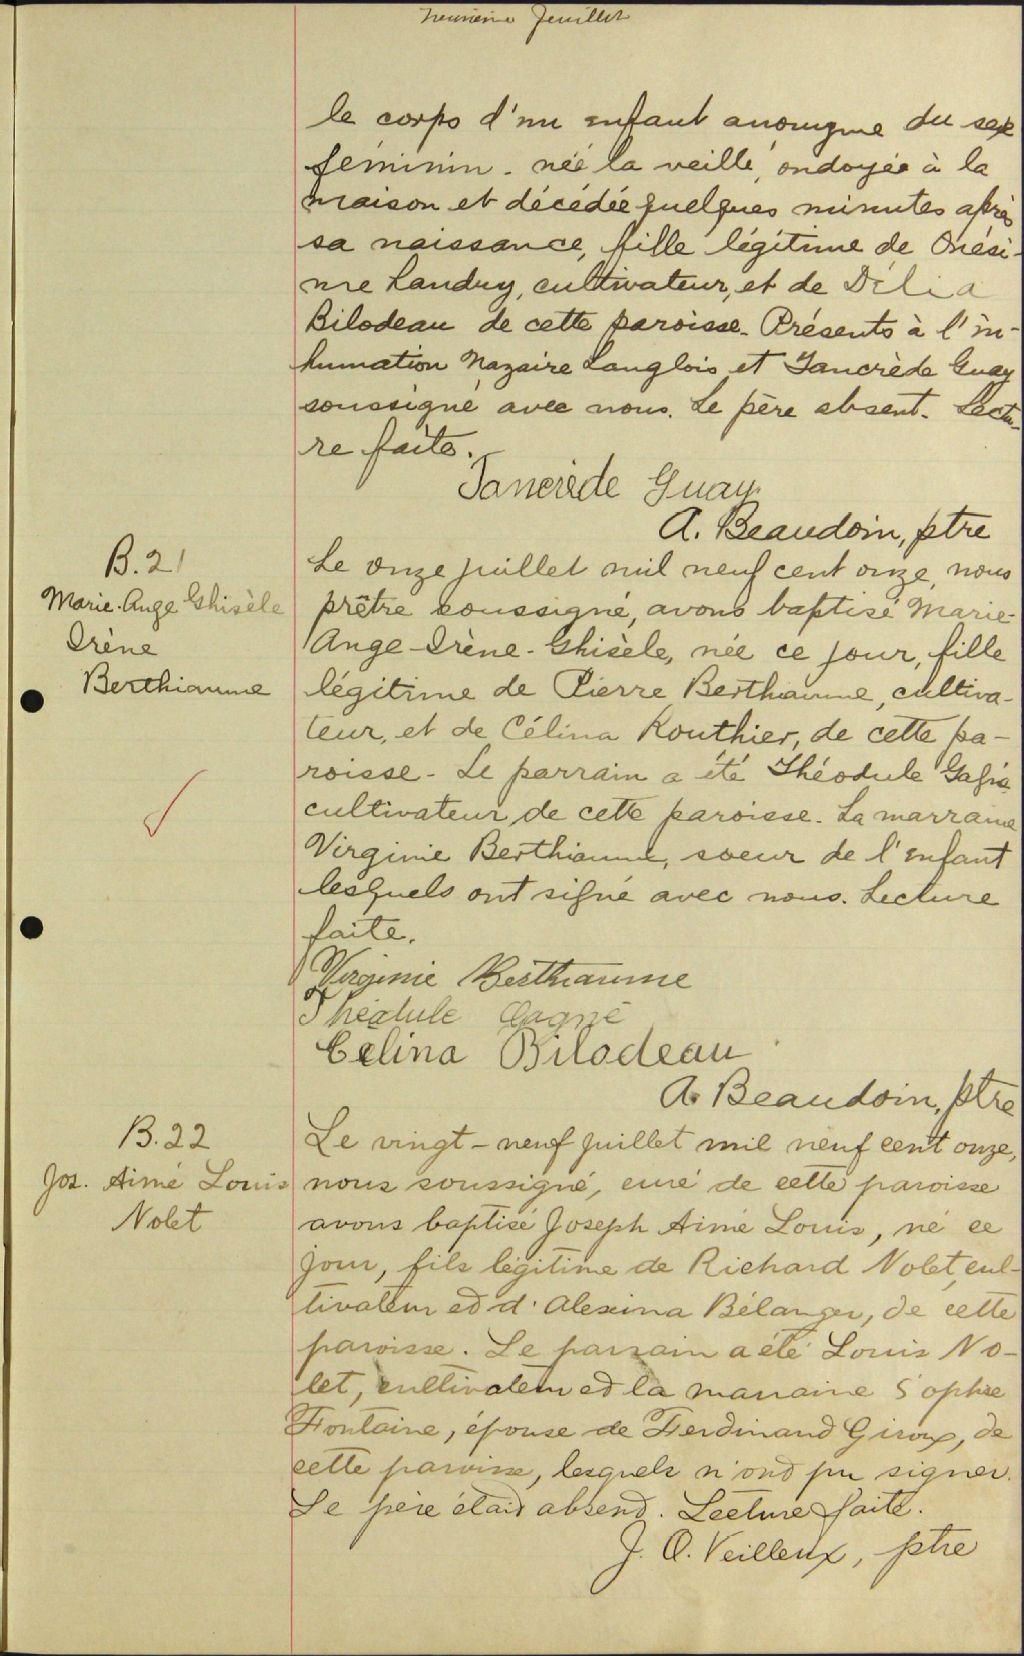 neuvième feuillet
le corps d'un enfant anonyme du sexe
féminin. née la veille, ondoyée à la
maison et décédée quelques minutes après
sa naissance, fille légitime de Onési-
me Landry, cultivateur, et de Délia
Bilodeau de cette paroisse. Présents à l'in-
humation Nazaire Langlois et Tancrède Guay
soussigné avec nous. Le père absent. Lectu-
re faite.
Tancrède Guay
A. Beaudoin, ptre
B.21
Marie-Ange Ghisèle
Irène
Berthiaume
Le onze juillet mil neuf cent onze, nous
prêtre soussigné, avons baptisé Marie-
Ange-Irène-Ghisèle, née ce jour, fille
légitime de Pierre Berthiaume, cultiva-
teur, et de Célina Routhier, de cette pa-
roisse. Le parrain a été Théodule Gagné
cultivateur de cette paroisse. La marraine
Virginie Berthiaume, soeur de l'enfant
lesquels ont signé avec nous. Lecture
faite.
Virginie Berthiaume
Théodule Gagné
Célina Bilodeau
A. Beaudoin, ptre
B.22
Jos. Aimé Louis
Nolet
Le vingt-neuf juillet mil neuf cent onze,
nous soussigné, curé de cette paroisse
avons baptisé Joseph Aimé Louis, né ce
jour, fils légitime de Richard Nolet, cul-
tivateur et d'Alexina Bélanger, de cette
paroisse. Le parrain a été Louis No-
let, cultivateur et la marraine Sophie
Fontaine, épouse de Ferdinand Giroux, de
cette paroisse, lesquels n'ont pu signer.
Le père était absent. Lecture faite.
J. O. Veilleux, ptre